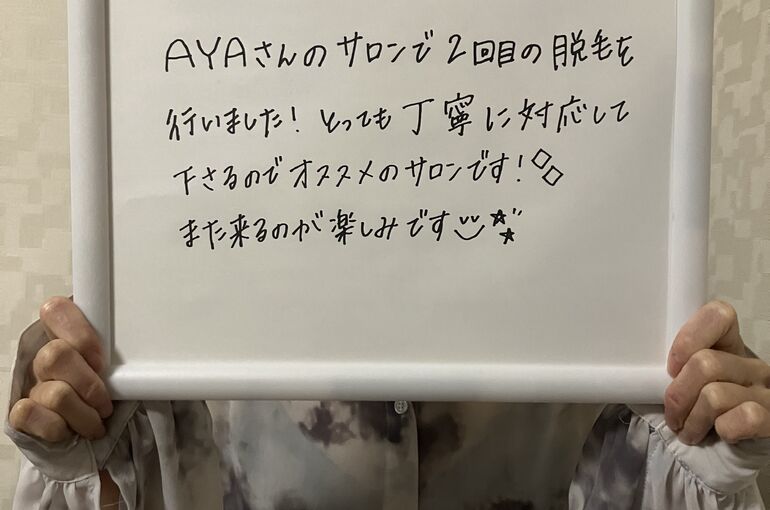 AYAさんのサロンで2回目の脱毛を
行いました！とっても丁寧に対応して
下さるのでオススメのサロンです！
また来るのが楽しみです